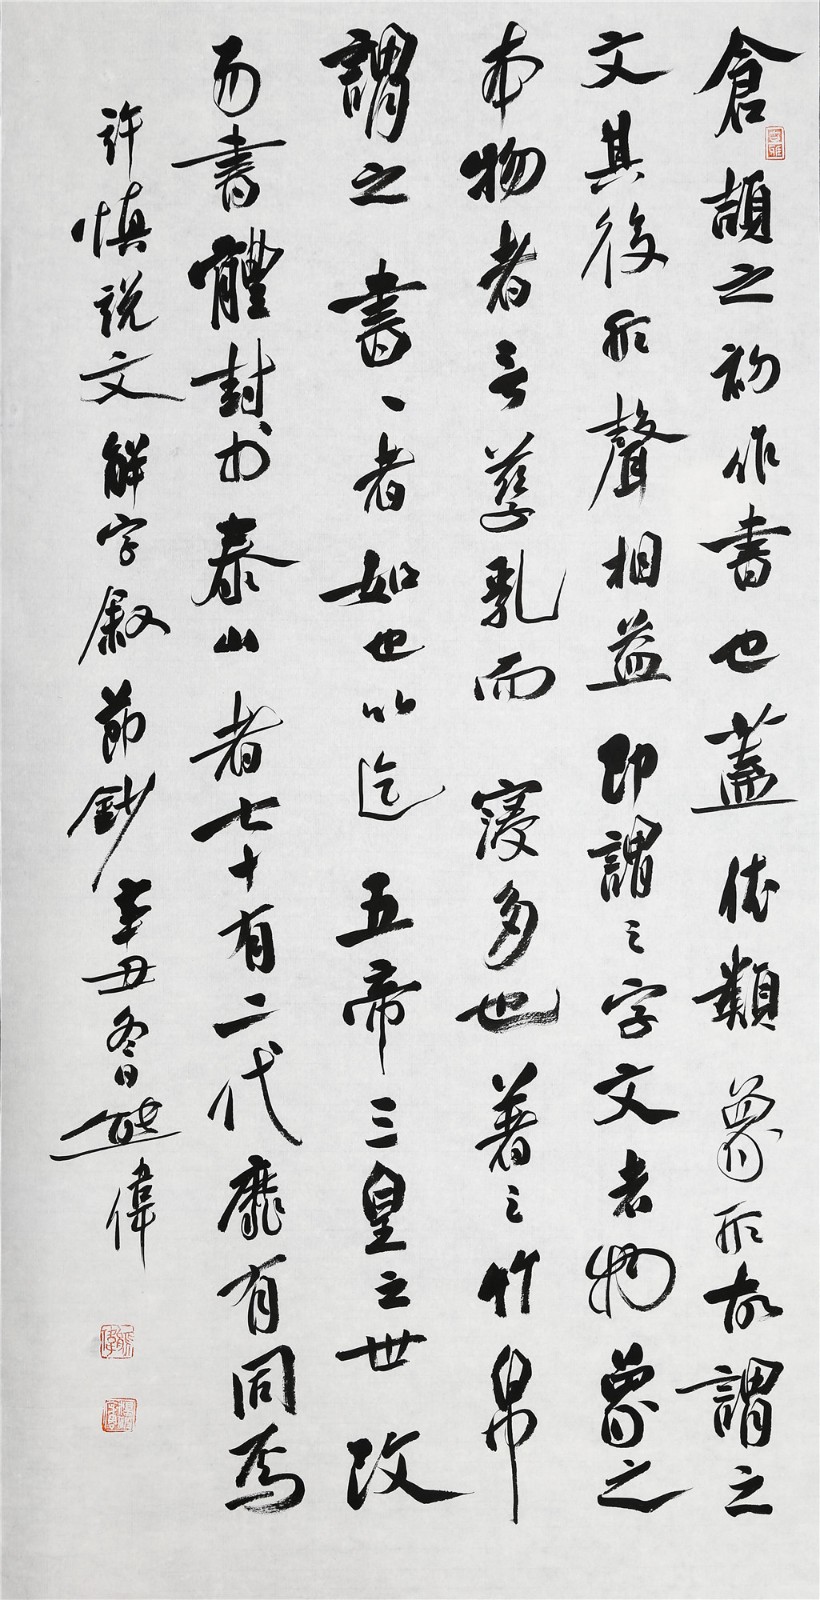 倉頡之初作書也蓋依類象形故謂之
文其後形聲相益即謂之字文者物象之
本物者言孳乳而寖多也著之竹帛
謂之書書者如也以迄五帝三皇之世改
易書體封于泰山者七十有二代靡有同焉
許慎说文解字叙節鈔辛丑冬日熊偉